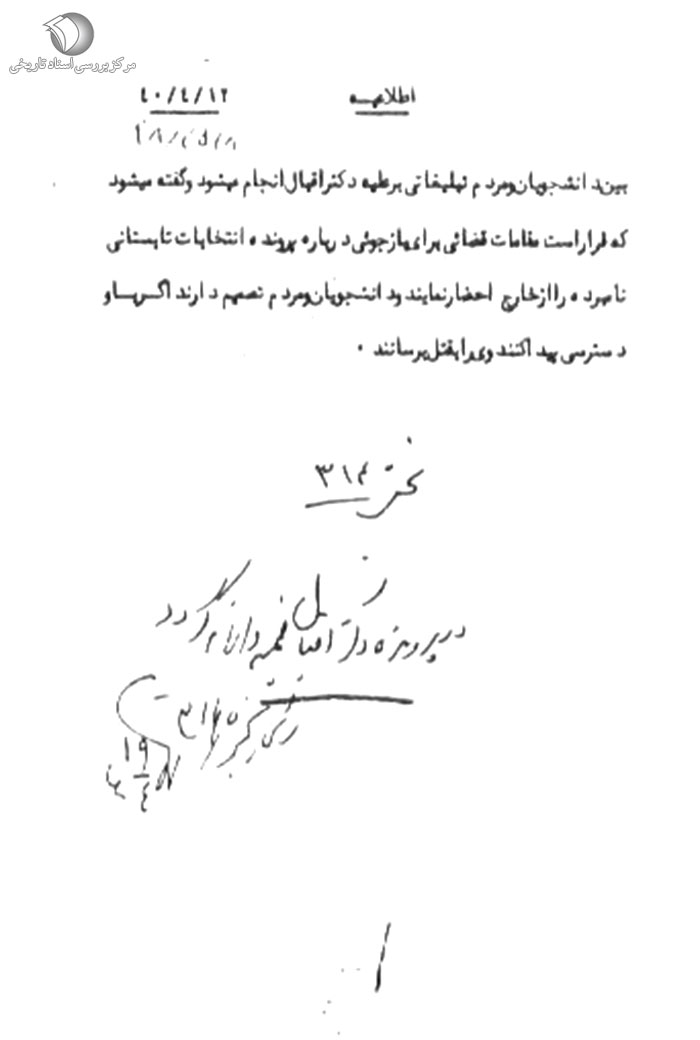 مرکز بررسی اسناد تاریخی
اطلاعیه
۴۰/۴/۱۲
بین دانشجویان و مردم تبلیغاتی بر علیه دکتر اقبال انجام میشود و گفته میشود
که قرار است مقامات قضائی برای بازجوئی درباره پرونده انتخابات تابستانی
نامبرده را از خارج احضار نمایند و دانشجویان و مردم تصمیم دارند اگر به او
دسترسی پیدا کنند وی را بقتل برسانند ۰
بخش ۳۱۴
در پرونده دکتر اقبال ضمیمه و اقدام گردد
۱۹
۴